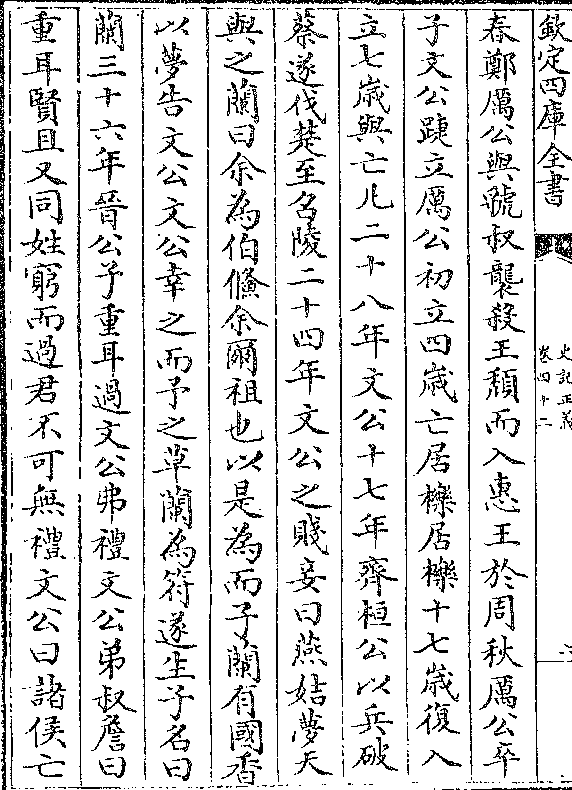 欽定四庫全書
史記正義
卷四十二
春鄭厲公與虢叔襲殺王頹而入惠王於周秋厲公卒
子文公踕立厲公初立四歳亡居櫟居櫟十七歳復入
立七歳與亡凡二十八年文公十七年齊桓公以兵破
蔡遂伐楚至召陵二十四年文公之賤妾曰燕姞夢天
與之蘭曰余為伯鯈余爾祖也以是為而子蘭有國香
以夢告文公文公幸之而予之草蘭為符遂生子名曰
蘭三十六年晉公子重耳過文公弗禮文公弟叔詹曰
重耳賢且又同姓窮而過君不可無禮文公曰諸侯亡